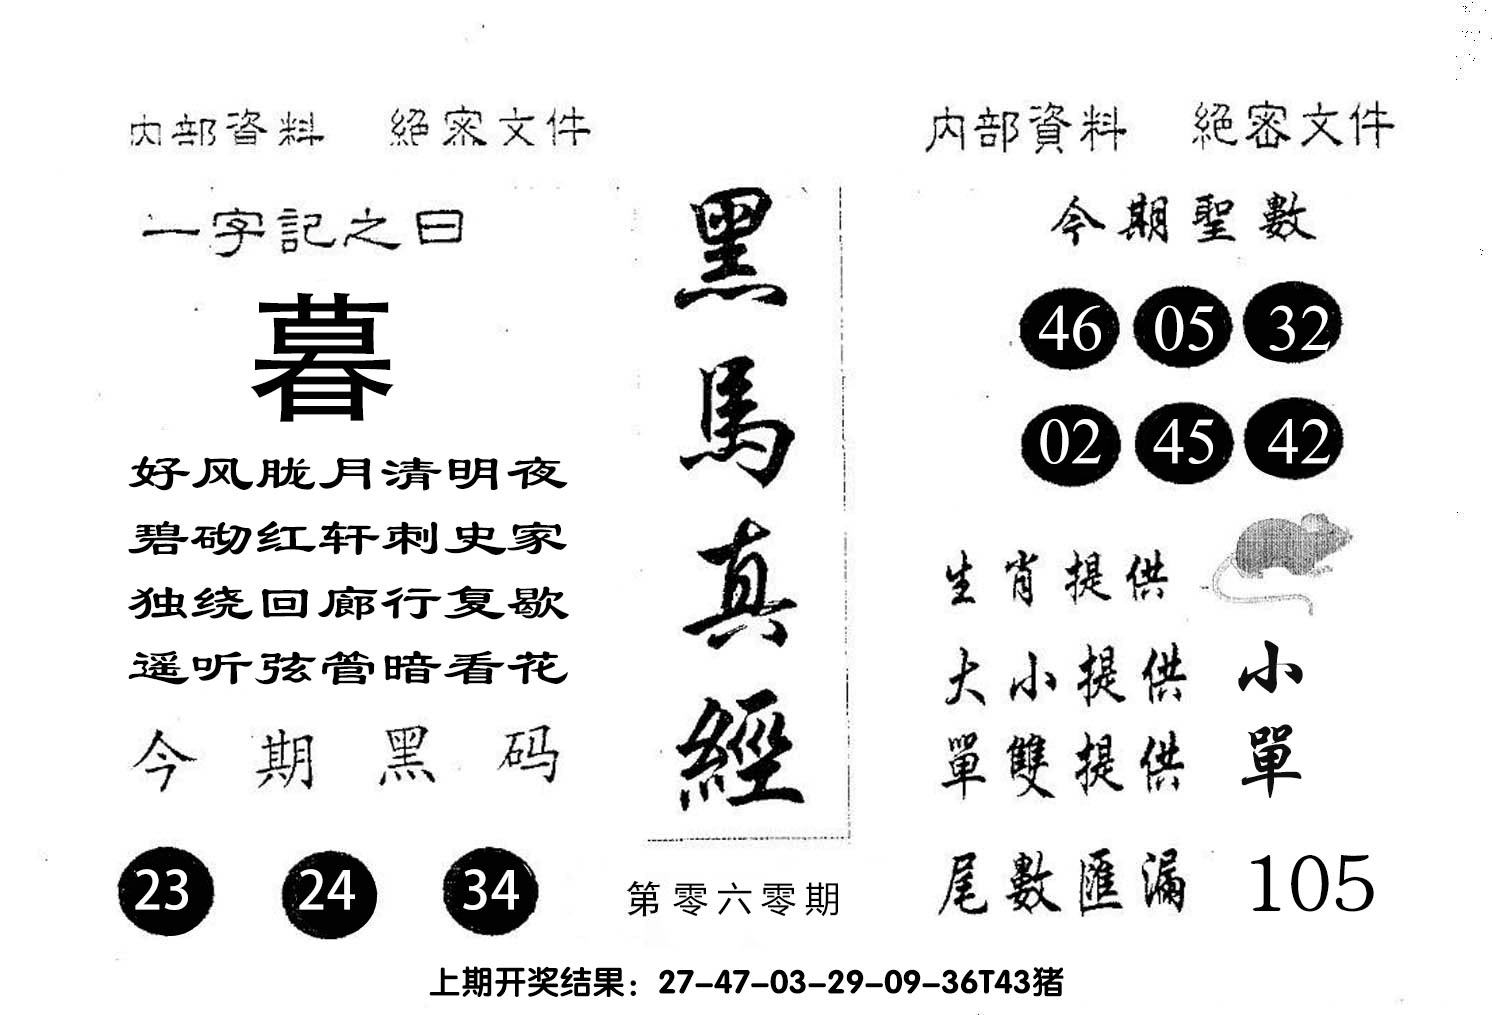 内部資料 絕密文件
一字記之曰
暮
好风胧月清明夜
碧砌红轩刺史家
独绕回廊行复歇
遥听弦管暗看花
今期黑码
23 24 34
黑馬真經
第零六零期
内部資料 絕密文件
今期聖數
46 05 32
02 45 42
生肖提供
大小提供 小
單雙提供 單
尾數匯漏 105
上期开奖结果：27-47-03-29-09-36T43猪